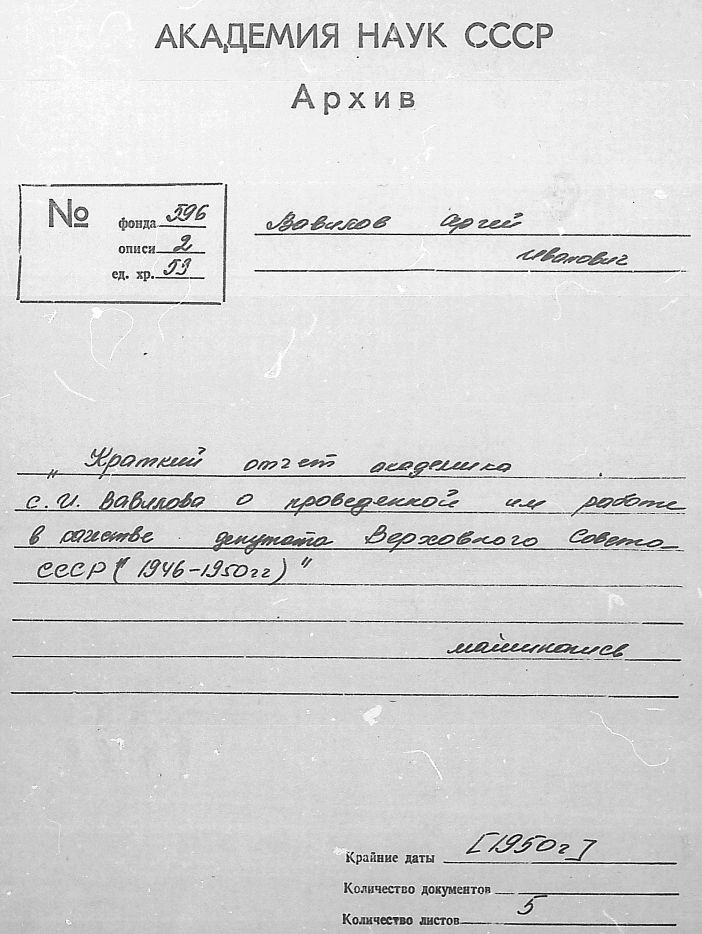 АКАДЕМИЯ НАУК СССР
Архив
№ фонда 596
описи 2
ед. хр. 53
Вавилов Сергей
Иванович
„Краткий отчет академика
С. И. Вавилова о проведенной им работе
в качестве депутата Верховного Совета
СССР (1946-1950гг)"
машинопись
Крайние даты [1950г]
Количество документов
Количество листов 5